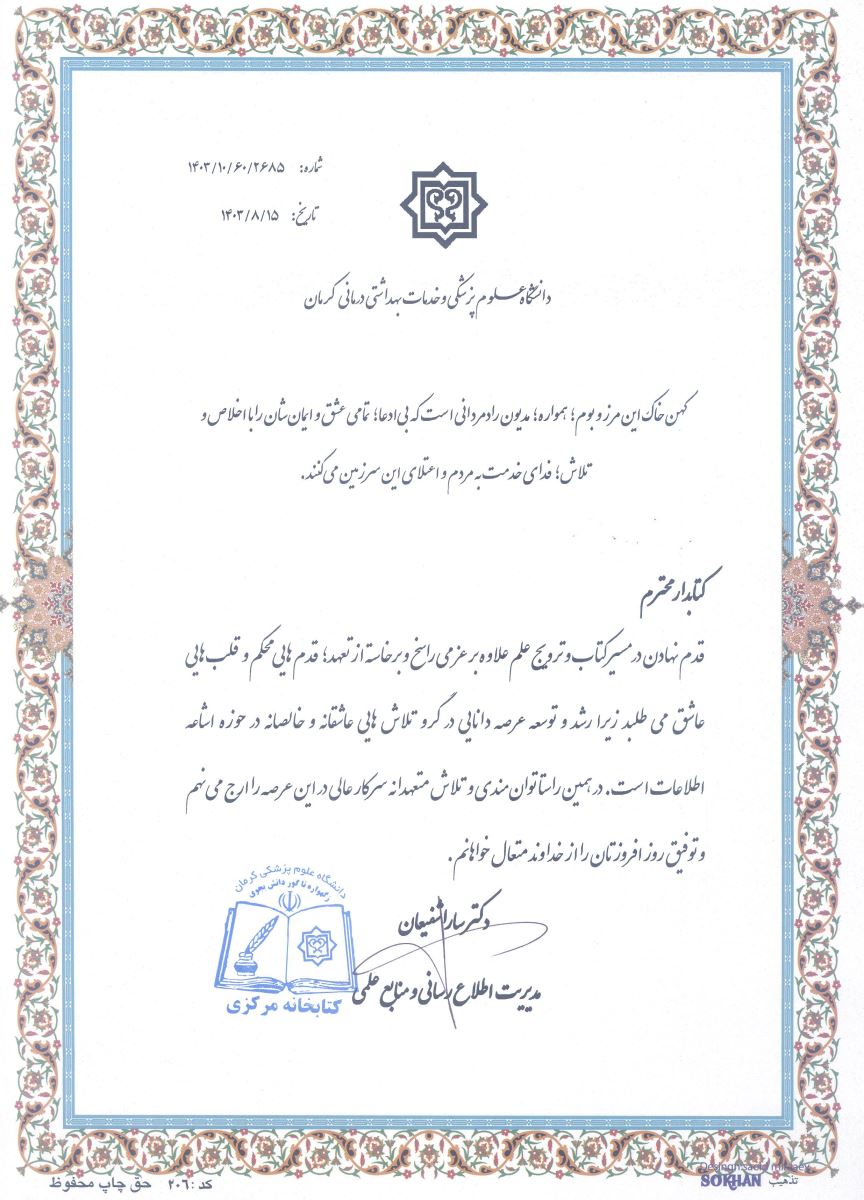 شماره: ۱۴۰۳/۱۰/۶۰/۲۶۸۵
تاریخ: ۱۴۰۳/۸/۱۵
دانشگاه علوم پزشکی و خدمات بهداشتی درمانی کرمان
کهن خاک این مرز و بوم؛ همواره؛ مدیون رادمردانی است که بی ادعا؛ تمامی عشق و ایمان شان را با اخلاص و
تلاش؛ فدای خدمت به مردم و اعتلای این سرزمین می کنند.
کتابدار محترم
قدم نهادن در مسیر کتاب و ترویج علم علاوه بر عزمی راسخ و برخاسته از تعهد؛ قدم هایی محکم و قلب هایی
عاشق می طلبد زیرا رشد و توسعه عرصه دانایی در گرو تلاش هایی عاشقانه و خالصانه در حوزه اشاعه
اطلاعات است. در همین راستا توان مندی و تلاش متعهدانه سرکار عالی در این عرصه را ارج می نهم
و توفیق روز افزونتان را از خداوند متعال خواهانم.
دکتر سارا شفیعان
مدیریت اطلاع رسانی و منابع علمی
دانشگاه علوم پزشکی کرمان
زگهواره تا گور دانش بجوی
کتابخانه مرکزی
Desingh:saeid mirzaey
تذهیب SOKHAN
کد: ۲۰۶ حق چاپ محفوظ